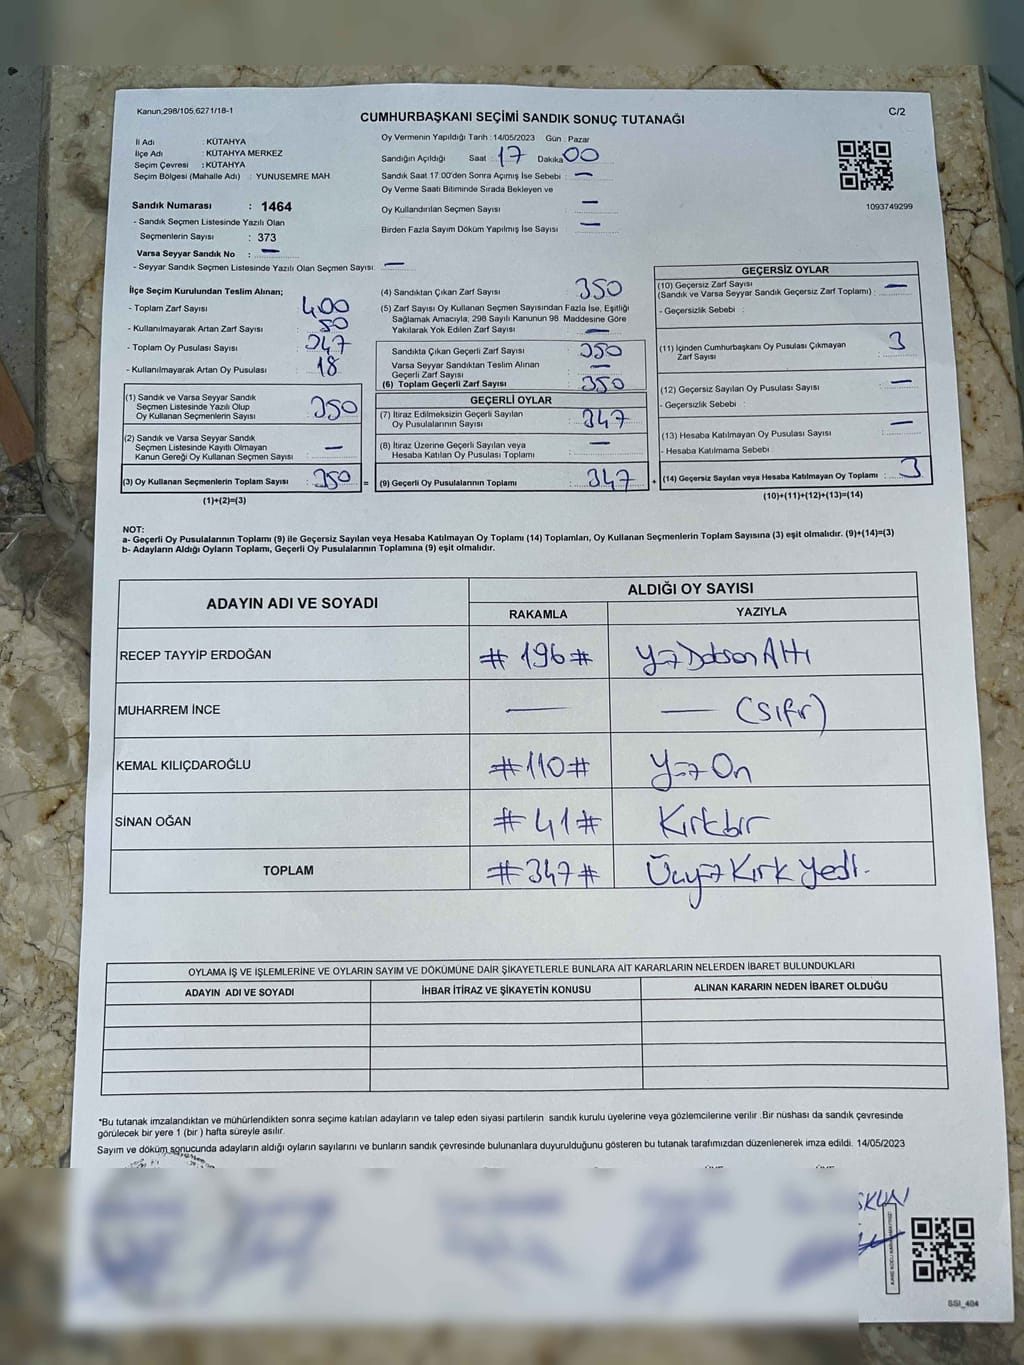 Kanun.298/105,6271/18-1
C/2
CUMHURBAŞKANI SEÇİMİ SANDIK SONUÇ TUTANAĞI
İl Adı : KÜTAHYA
İlçe Adı : KÜTAHYA MERKEZ
Seçim Çevresi : KÜTAHYA
Seçim Bölgesi (Mahalle Adı) : YUNUSEMRE MAH
Sandık Numarası : 1464
- Sandık Seçmen Listesinde Yazılı Olan
Seçmenlerin Sayısı : 373
Varsa Seyyar Sandık No : —
- Seyyar Sandık Seçmen Listesinde Yazılı Olan Seçmen Sayısı: —
Oy Vermenin Yapıldığı Tarih : 14/05/2023 Gün : Pazar
Sandığın Açıldığı Saat : 17 Dakika 00
Sandık Saat 17:00'den Sonra Açımış İse Sebebi : —
Oy Verme Saati Bitiminde Sırada Bekleyen ve
Oy Kullandırılan Seçmen Sayısı : —
Birden Fazla Sayım Döküm Yapılmış İse Sayısı : —
1093749299
İlçe Seçim Kurulundan Teslim Alınan;
- Toplam Zarf Sayısı : 400
- Kullanılmayarak Artan Zarf Sayısı : 50
- Toplam Oy Pusulası Sayısı : 347
- Kullanılmayarak Artan Oy Pusulası : 18
(1) Sandık ve Varsa Seyyar Sandık
Seçmen Listesinde Yazılı Olup
Oy Kullanan Seçmenlerin Sayısı : 350
(2) Sandık ve Varsa Seyyar Sandık
Seçmen Listesinde Kayıtlı Olmayan
Kanun Gereği Oy Kullanan Seçmen Sayısı : —
(3) Oy Kullanan Seçmenlerin Toplam Sayısı : 350 =
(1)+(2)=(3)
(4) Sandıktan Çıkan Zarf Sayısı : 350
(5) Zarf Sayısı Oy Kullanan Seçmen Sayısından Fazla İse, Eşitliği
Sağlamak Amacıyla, 298 Sayılı Kanunun 98. Maddesine Göre
Yakılarak Yok Edilen Zarf Sayısı : —
Sandıkta Çıkan Geçerli Zarf Sayısı : 350
Varsa Seyyar Sandıktan Teslim Alınan
Geçerli Zarf Sayısı : —
(6) Toplam Geçerli Zarf Sayısı : 350
GEÇERLİ OYLAR
(7) İtiraz Edilmeksizin Geçerli Sayılan
Oy Pusulalarının Sayısı : 347
(8) İtiraz Üzerine Geçerli Sayılan veya
Hesaba Katılan Oy Pusulası Toplamı : —
(9) Geçerli Oy Pusulalarının Toplamı : 347 +
GEÇERSİZ OYLAR
(10) Geçersiz Zarf Sayısı
(Sandık ve Varsa Seyyar Sandık Geçersiz Zarf Toplamı) : —
- Geçersizlik Sebebi :
(11) İçinden Cumhurbaşkanı Oy Pusulası Çıkmayan
Zarf Sayısı : 3
(12) Geçersiz Sayılan Oy Pusulası Sayısı : —
- Geçersizlik Sebebi :
(13) Hesaba Katılmayan Oy Pusulası Sayısı : —
- Hesaba Katılmama Sebebi :
(14) Geçersiz Sayılan veya Hesaba Katılmayan Oy Toplamı : 3
(10)+(11)+(12)+(13)=(14)
NOT:
a- Geçerli Oy Pusulalarının Toplamı (9) ile Geçersiz Sayılan veya Hesaba Katılmayan Oy Toplamı (14) Toplamları, Oy Kullanan Seçmenlerin Toplam Sayısına (3) eşit olmalıdır. (9)+(14)=(3)
b- Adayların Aldığı Oyların Toplamı, Geçerli Oy Pusulalarının Toplamına (9) eşit olmalıdır.
ADAYIN ADI VE SOYADI ALDIĞI OY SAYISI
RAKAMLA YAZIYLA
RECEP TAYYİP ERDOĞAN # 196 # Yüz Doksan Altı
MUHARREM İNCE — — (Sıfır)
KEMAL KILIÇDAROĞLU # 110 # Yüz On
SİNAN OĞAN # 41 # Kırkbir
TOPLAM # 347 # Üçyüz Kırk Yedi.
OYLAMA İŞ VE İŞLEMLERİNE VE OYLARIN SAYIM VE DÖKÜMÜNE DAİR ŞİKAYETLERLE BUNLARA AİT KARARLARIN NELERDEN İBARET BULUNDUKLARI
ADAYIN ADI VE SOYADI İHBAR İTİRAZ VE ŞİKAYETİN KONUSU ALINAN KARARIN NEDEN İBARET OLDUĞU
*Bu tutanak imzalandıktan ve mühürlendikten sonra seçime katılan adayların ve talep eden siyasi partilerin sandık kurulu üyelerine veya gözlemcilerine verilir .Bir nüshası da sandık çevresinde
görülecek bir yere 1 (bir ) hafta süreyle asılır.
Sayım ve döküm sonucunda adayların aldığı oyların sayılarını ve bunların sandık çevresinde bulunanlara duyurulduğunu gösteren bu tutanak tarafımızdan düzenlenerek imza edildi. 14/05/2023
SSI_404